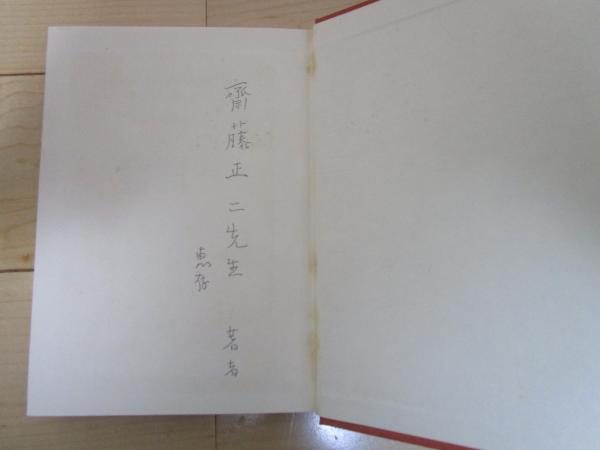 齋藤正二先生
恵存
著者